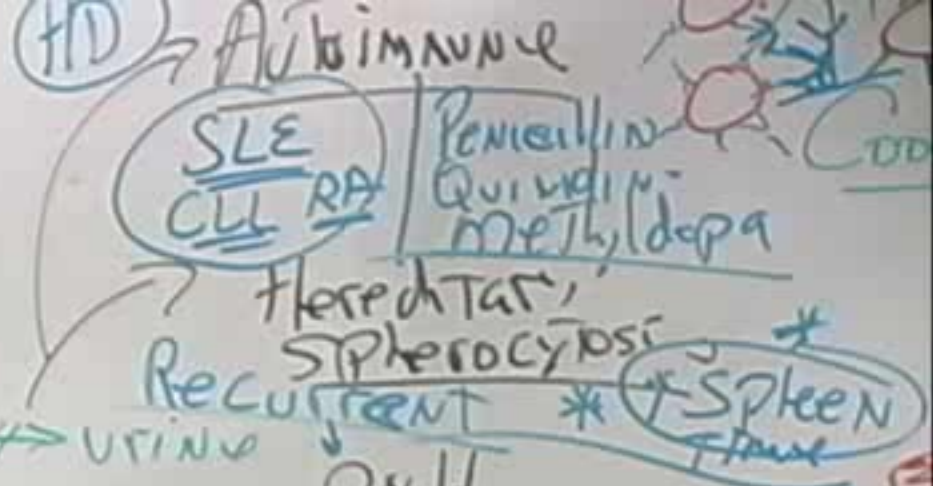 HD
Autoimmune
SLE
CLL RA
Penicillin
Quinidin
Methyldopa
Coo
Hereditary
Spherocytosi
Recurrent * Spleen
urine